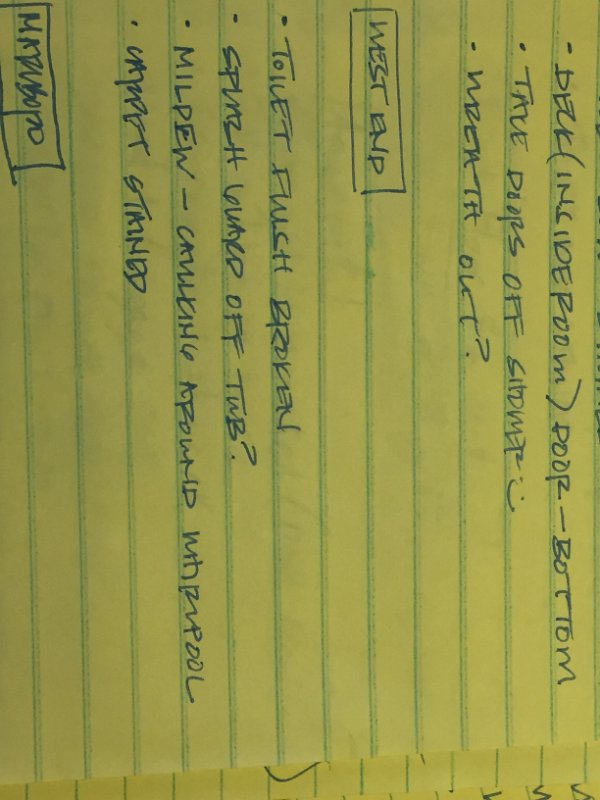 • DECK (INSIDE ROOM) DOOR – BOTTOM
• TAKE DOORS OFF SHOWER :)
• WREATH OUT?
WEST END
• TOILET FLUSH BROKEN
• SPLASH GUARD OFF TUB?
• MILDEW – CAULKING AROUND WHIRLPOOL
• CARPET STAINED